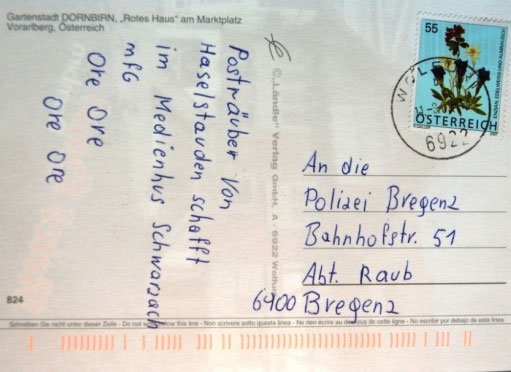 Gartenstadt DORNBIRN, „Rotes Haus" am Marktplatz
Vorarlberg, Österreich
Posträuber von
Haselstauden schafft
im Medienhus Schwarzach
mfG
Ore Ore
Ore Ore
© „Ländle" Verlag GmbH, A - 6922 Wolfurt
55
ENZIAN, EDELWEISS UND ALMRAUSCH
ÖSTERREICH
6922
An die
Polizei Bregenz
Bahnhofstr. 51
Abt. Raub
6900 Bregenz
824
Schreiben Sie nicht unter dieser Zeile - Do not write below this line - Non scrivere sotto questa linea - Ne rien écrire au dessous de cette ligne - No escribir por debajo de esta linea.